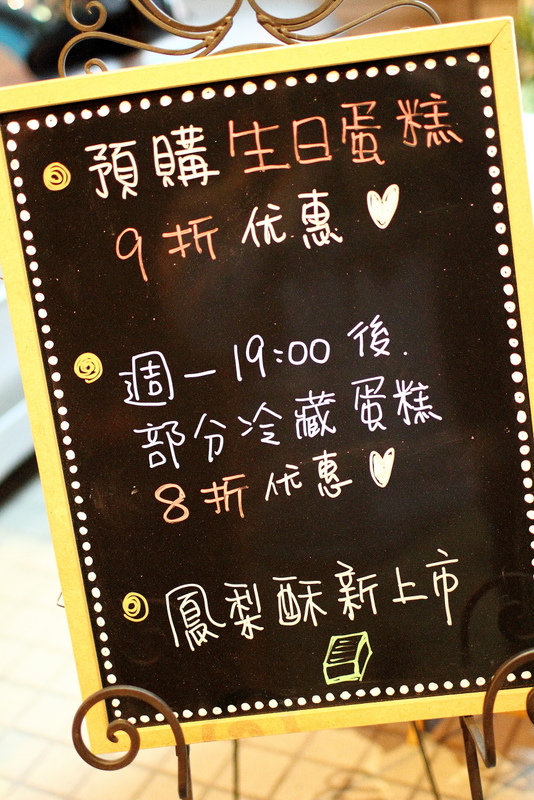 預購生日蛋糕
9折优惠
週一19:00後.
部分冷藏蛋糕
8折优惠
鳳梨酥新上市